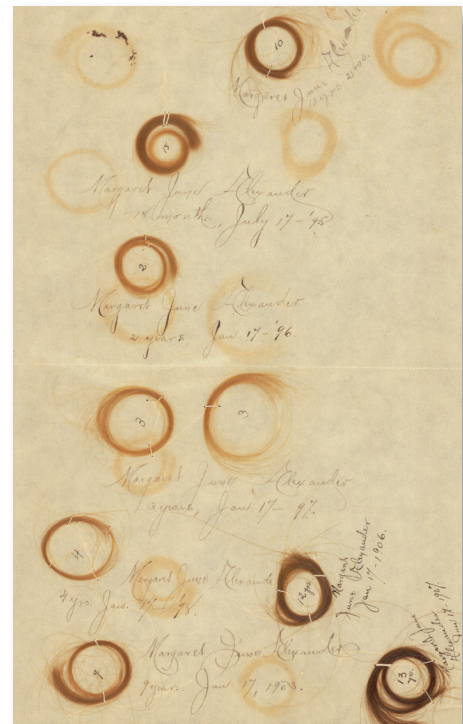 10
Margaret June Alexander
1½
Margaret June Alexander
18 months, July 17-'95
2
Margaret June Alexander
2 years, Jan 17-'96.
3
3
Margaret June Alexander
3 years, Jan 17-97.
4
Margaret June Alexander
4 yrs. Jan. 17-98.
12 yrs
Margaret
June Alexander
Jan 17-1906.
9
Margaret June Alexander
9 years. Jan 17, 1903.
13
yrs